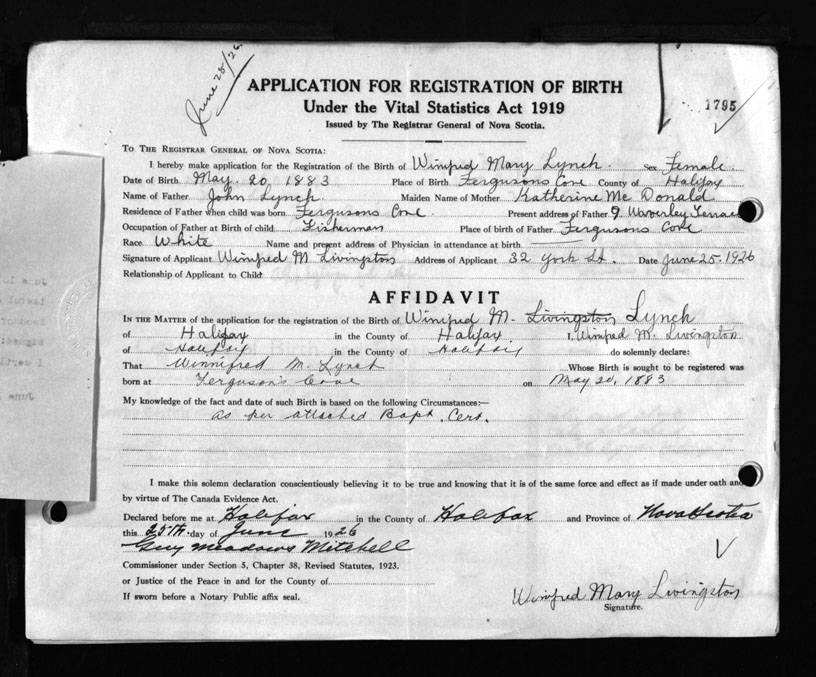 June 25/26
APPLICATION FOR REGISTRATION OF BIRTH
Under the Vital Statistics Act 1919
Issued by The Registrar General of Nova Scotia.
1795
TO THE REGISTRAR GENERAL OF NOVA SCOTIA:
I hereby make application for the Registration of the Birth of Winifred Mary Lynch. Sex Female.
Date of Birth May. 20 1883 Place of Birth Fergusons Cove County of Halifax
Name of Father John Lynch Maiden Name of Mother Katherine Mc Donald
Residence of Father when child was born Fergusons Cove. Present address of Father 9 Waverley Terrace
Occupation of Father at Birth of child Fisherman Place of birth of Father Fergusons Cove
Race White Name and present address of Physician in attendance at birth
Signature of Applicant Winifred M Livingston Address of Applicant 32 York St. Date June 25. 1926
Relationship of Applicant to Child
AFFIDAVIT
IN THE MATTER of the application for the registration of the Birth of Winifred M. Livingston Lynch
of Halifax in the County of Halifax I, Winifred M. Livingston
of Halifax in the County of Halifax do solemnly declare:
That Winnifred M. Lynch Whose Birth is sought to be registered was
born at Ferguson's Cove on May 20, 1883
My knowledge of the fact and date of such Birth is based on the following Circumstances:—
as per attached Bapt. Cert.
I make this solemn declaration conscientiously believing it to be true and knowing that it is of the same force and effect as if made under oath and
by virtue of The Canada Evidence Act.
Declared before me at Halifax in the County of Halifax and Province of Nova Scotia
this 25th day of June 1926
Guy Meadows Mitchell
Commissioner under Section 5, Chapter 38, Revised Statutes, 1923.
or Justice of the Peace in and for the County of
If sworn before a Notary Public affix seal.
Winifred Mary Livingston
Signature.